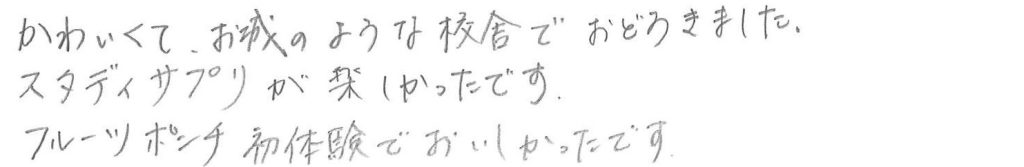 かわいくて、お城のような校舎でおどろきました。
スタディサプリが楽しかったです。
フルーツポンチ初体験でおいしかったです。